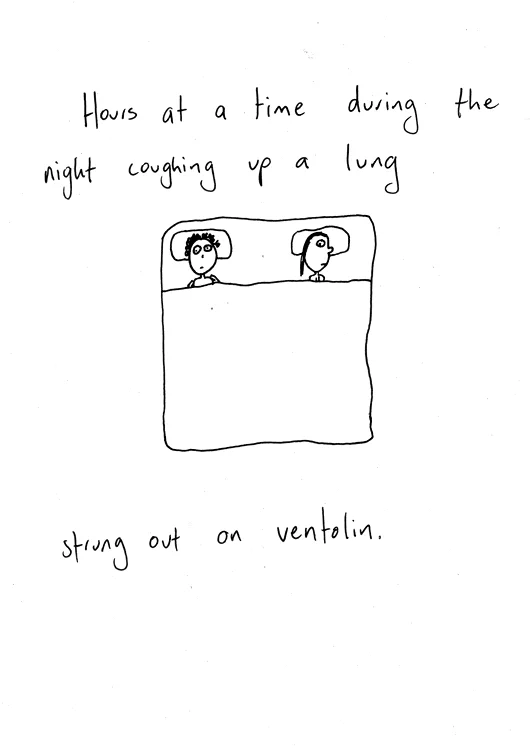 Hours at a time during the
night coughing up a lung
strung out on ventolin.